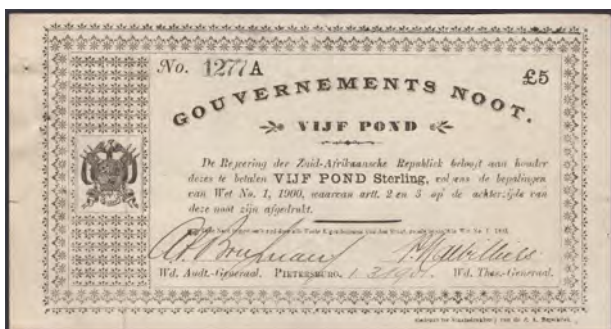 No. 1277A
£5
GOUVERNEMENTS NOOT.
VIJF POND
De Regeering der Zuid-Afrikaansche Republiek belooft aan houder
dezes te betalen VIJF POND Sterling, volgens de bepalingen
van Wet No. 1, 1900, waarvan artt. 2 en 5 op de achterzijde van
deze noot zijn afgedrukt.
Wd. Audt.-Generaal. PIETERSBURG, 1.3.1901. Wd. Thes.-Generaal.